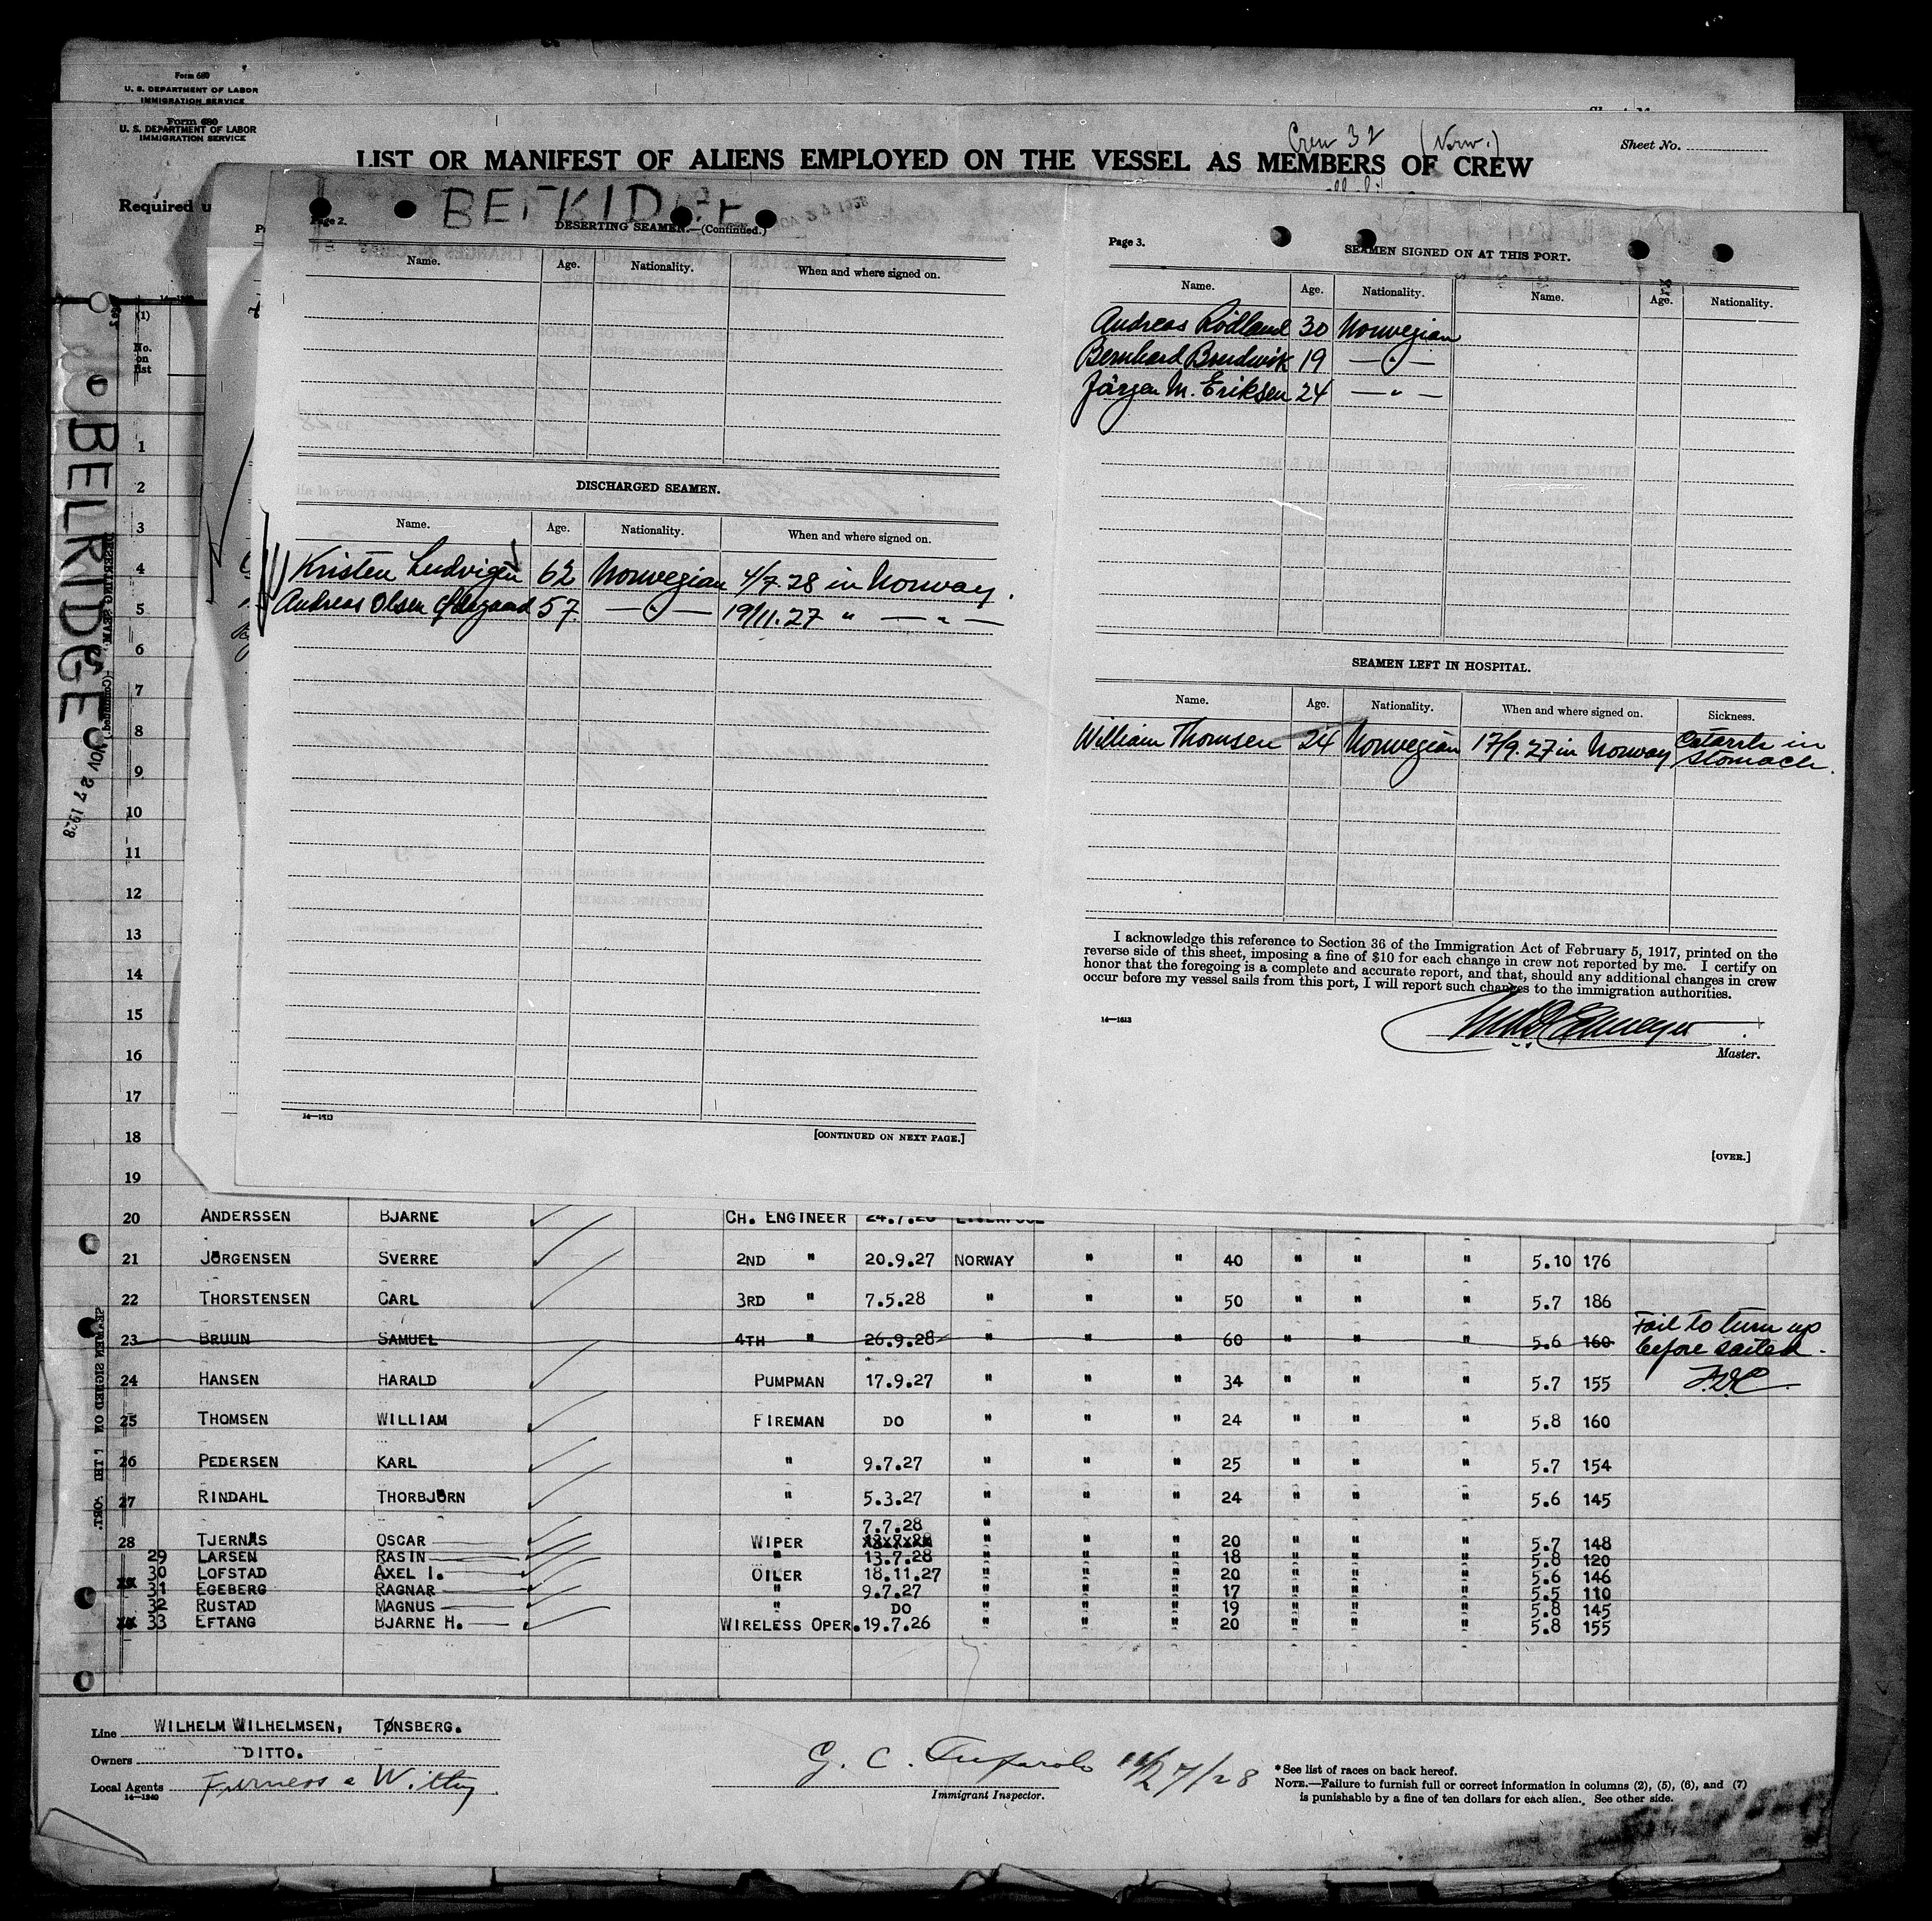 Form 680
U. S. DEPARTMENT OF LABOR
IMMIGRATION SERVICE
Form 680
U. S. DEPARTMENT OF LABOR
IMMIGRATION SERVICE
Crew 32 (Norw.)
Sheet No.
LIST OR MANIFEST OF ALIENS EMPLOYED ON THE VESSEL AS MEMBERS OF CREW
Required u
BELRIDGE
NOV 27 1928
(1)
No. on list
Page 2.
DESERTING SEAMEN.—(Continued.)
Name. Age. Nationality. When and where signed on.
DISCHARGED SEAMEN.
Name. Age. Nationality. When and where signed on.
Kristen Ludvigsen 62 Norwegian 4/7.28 in Norway.
Andreas Olsen Ødegaard 57 — " — 19/11.27 " — " —
14—1613
[CONTINUED ON NEXT PAGE.]
Page 3.
SEAMEN SIGNED ON AT THIS PORT.
Name. Age. Nationality. Name. Age. Nationality.
Andreas Rödland 30 Norwegian
Bernhard 19 — " —
Jörgen M. Eriksen 24 — " —
SEAMEN LEFT IN HOSPITAL.
Name. Age. Nationality. When and where signed on. Sickness.
William Thomsen 24 Norwegian 17/9.27 in Norway Catarrh in
stomach.
I acknowledge this reference to Section 36 of the Immigration Act of February 5, 1917, printed on the
reverse side of this sheet, imposing a fine of $10 for each change in crew not reported by me. I certify on
honor that the foregoing is a complete and accurate report, and that, should any additional changes in crew
occur before my vessel sails from this port, I will report such changes to the immigration authorities.
14—1613
Master.
[OVER.]
1
2
3
4
5
6
7
8
9
10
11
12
13
14
15
16
17
18
19
20 ANDERSSEN BJARNE CH. ENGINEER 24.7.28 LIVERPOOL
21 JØRGENSEN SVERRE 2ND " 20.9.27 NORWAY " " 40 " " " 5.10 176
22 THORSTENSEN CARL 3RD " 7.5.28 " " " 50 " " " 5.7 186
23 BRUUN SAMUEL 4TH " 26.9.28 " " " 60 " " " 5.6 160 Fail to turn up
before sailed.
24 HANSEN HARALD PUMPMAN 17.9.27 " " " 34 " " " 5.7 155
25 THOMSEN WILLIAM FIREMAN DO " " " 24 " " " 5.8 160
26 PEDERSEN KARL " 9.7.27 " " " 25 " " " 5.7 154
27 RINDAHL THORBJØRN " 5.3.27 " " " 24 " " " 5.6 145
7.7.28 "
28 TJERNÅS OSCAR WIPER " " " 20 " " " 5.7 148
29 LARSEN RASIN " 13.7.28 " " " 18 " " " 5.8 120
30 LOFSTAD AXEL I. OILER 18.11.27 " " " 20 " " " 5.6 146
31 EGEBERG RAGNAR " 9.7.27 " " " 17 " " " 5.5 110
32 RUSTAD MAGNUS DO " " " 19 " " " 5.8 145
33 EFTANG BJARNE H. WIRELESS OPER. 19.7.26 " " " 20 " " " 5.8 155
Line WILHELM WILHELMSEN, TØNSBERG.
Owners DITTO.
Local Agents Furness & Withy
14—1240
G. C. 11/27/28
Immigrant Inspector.
* See list of races on back hereof.
NOTE.—Failure to furnish full or correct information in columns (2), (5), (6), and (7)
is punishable by a fine of ten dollars for each alien. See other side.